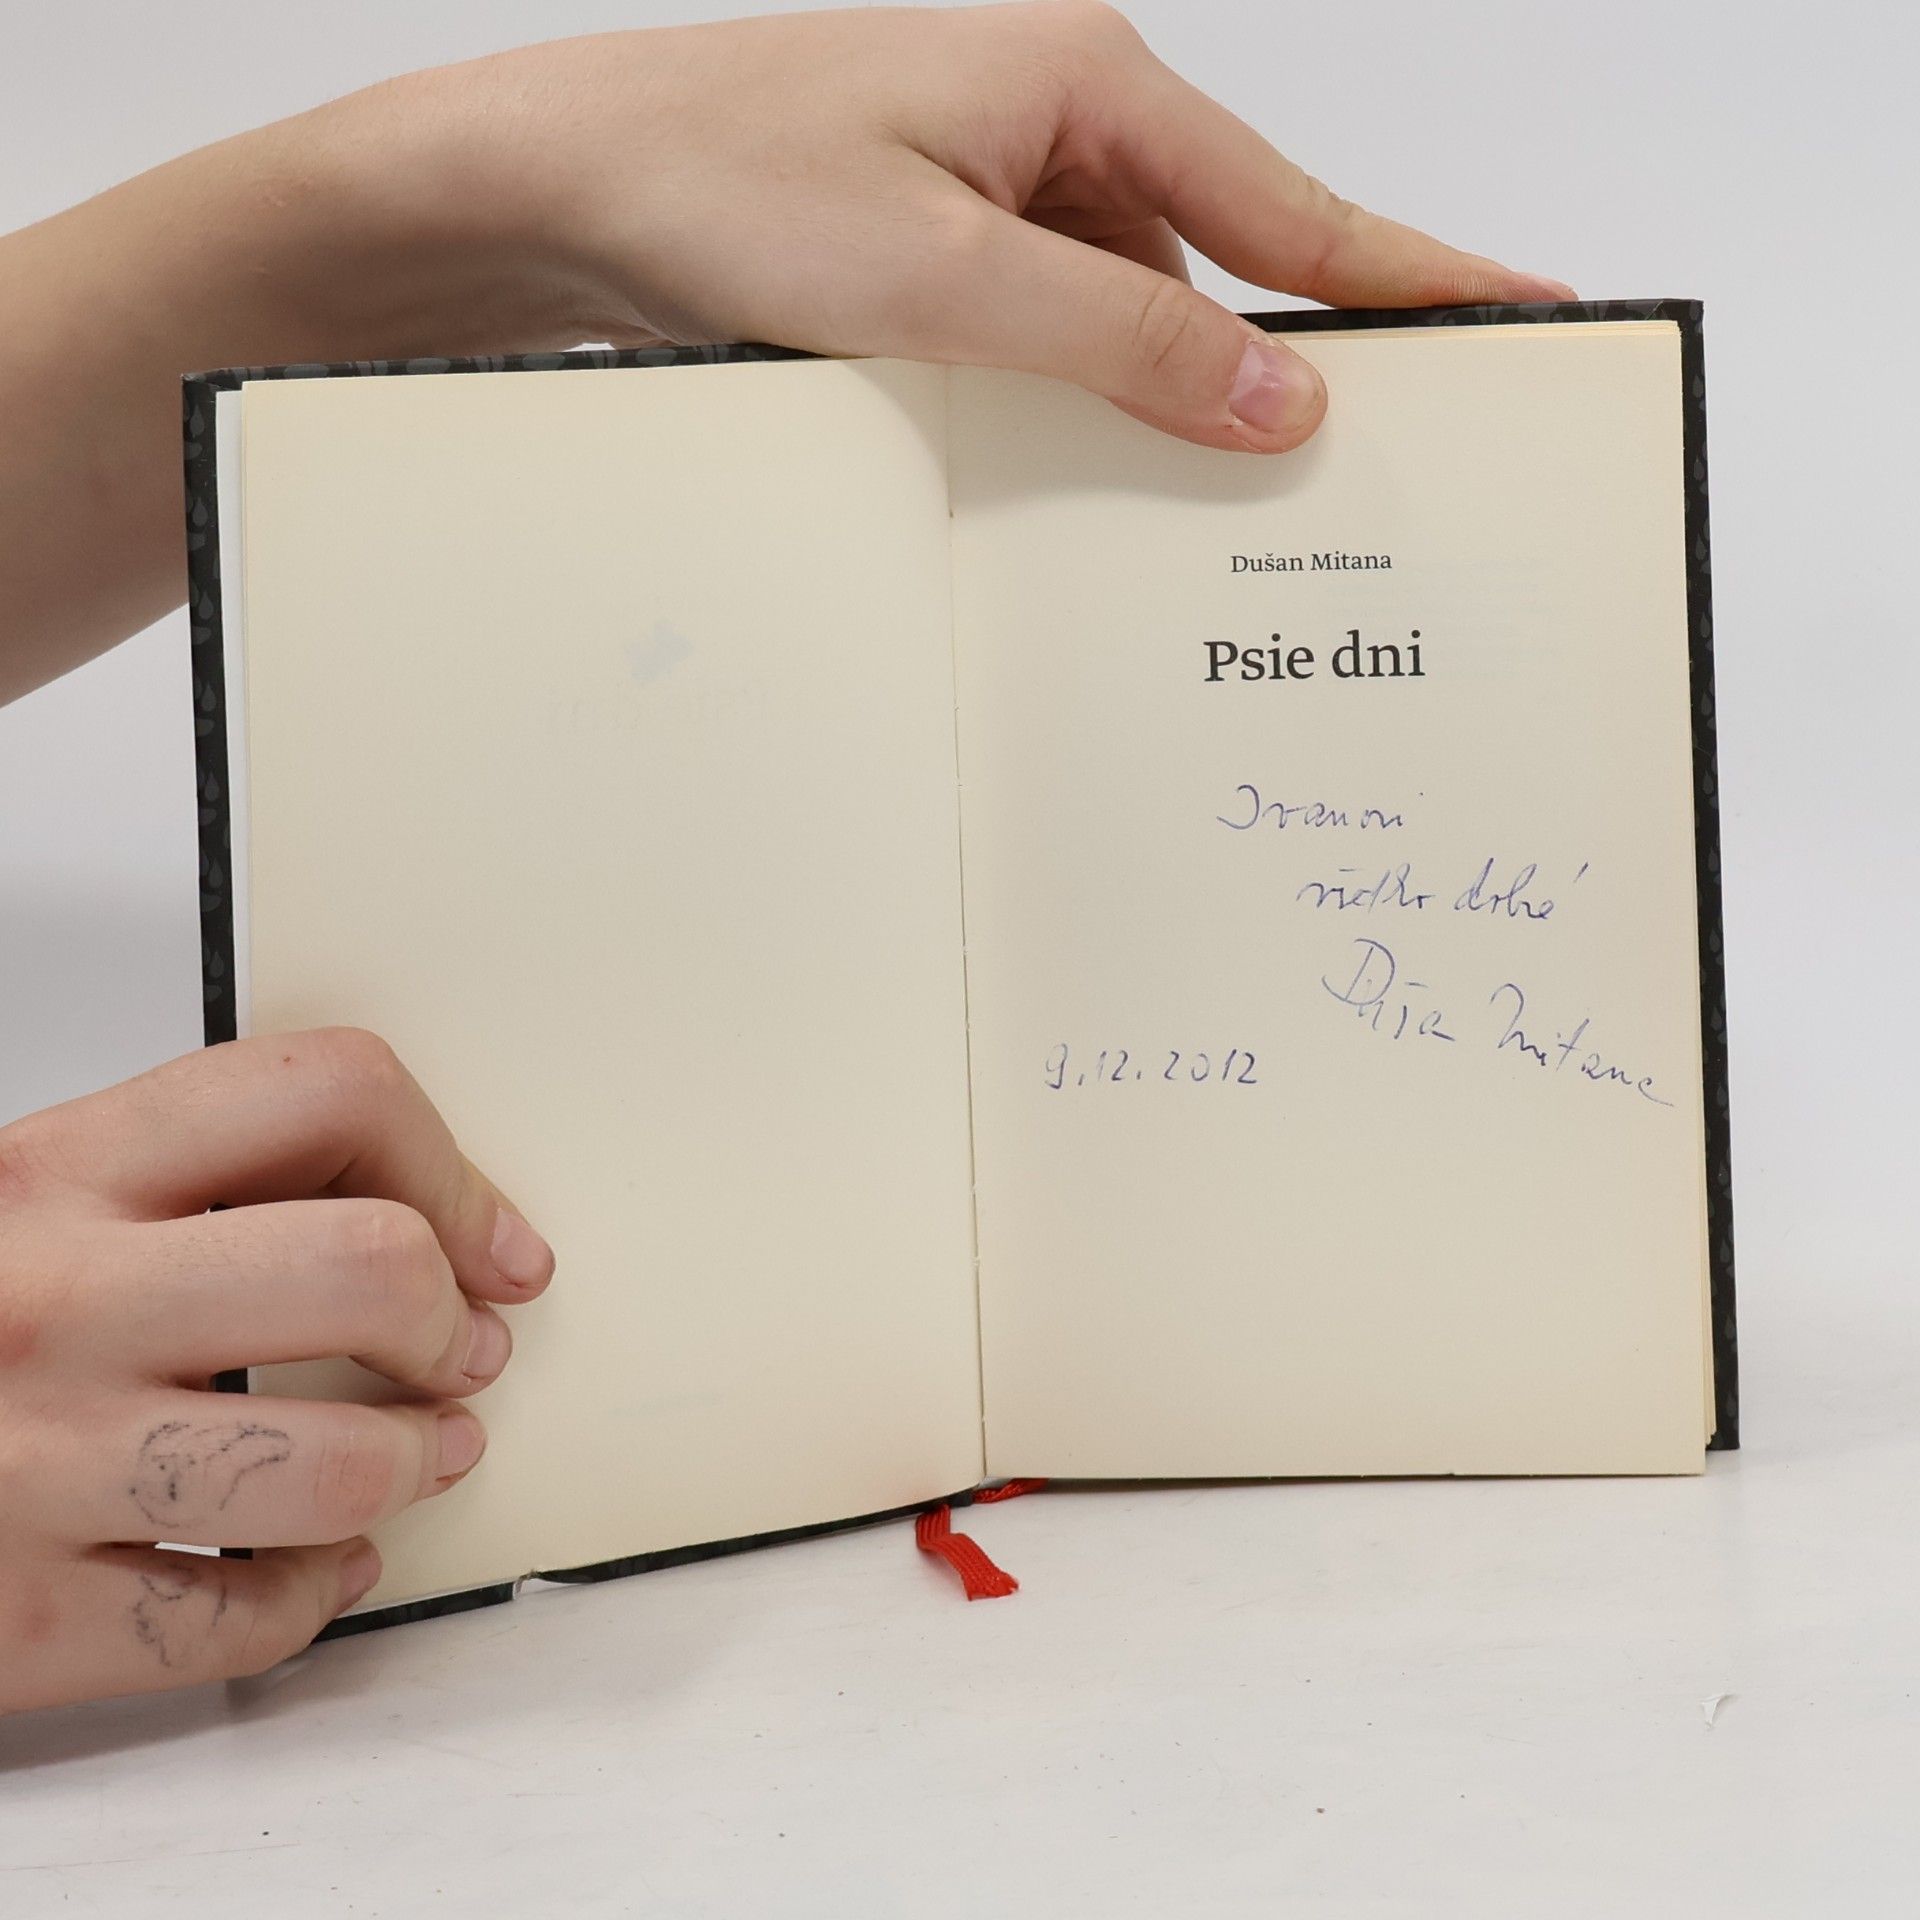 Dušan Mitana
Psie dni
Ivanovi
všetko dobré
Duša Mitana
9.12.2012